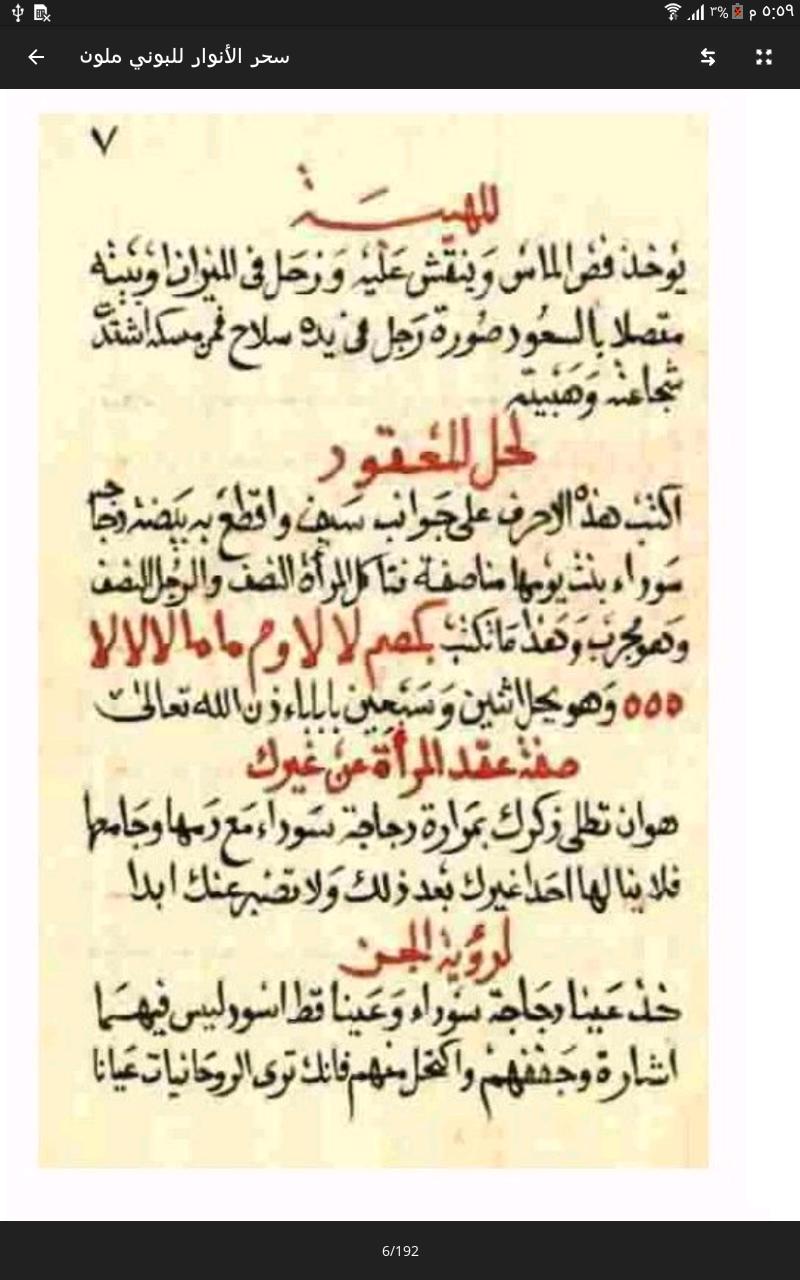 ٥:٥٩ م ٣%
سحر الأنوار للبوني ملون
٧
للهيبــة
يؤخذ فص الماس وينقش عليه وزحل في الميزان او بيته
متصلا بالسعود صورة رجل في يده سلاح فمن مسكه اشتدت
شجاعته وهيبته
لحل المعقود
اكتب هذه الاحرف على جوانب سيف واقطع به بيضة دجاجه
سوداء بنت يومها مناصفة فتاكل المرأة النصف والرجل النصف
وهو مجرب وهذا ما تكتب بكصم لا لا وم ما ما لا لا لا
٥٥٥ وهو يحل اثنين وسبعين بابا باذن الله تعالى
صفة عقد المرأة عن غيرك
هو ان تطلي ذكرك بمرارة دجاجة سوداء مع دمها وجامعها
فلا ينالها احدا غيرك بعد ذلك ولا تصبر عنك ابدا
لرؤية الجن
خذ عينا دجاجة سوداء وعينا قط اسود ليس فيهما
اشارة وجففهم واكتحل منهم فانك ترى الروحانيات عيانا
6/192